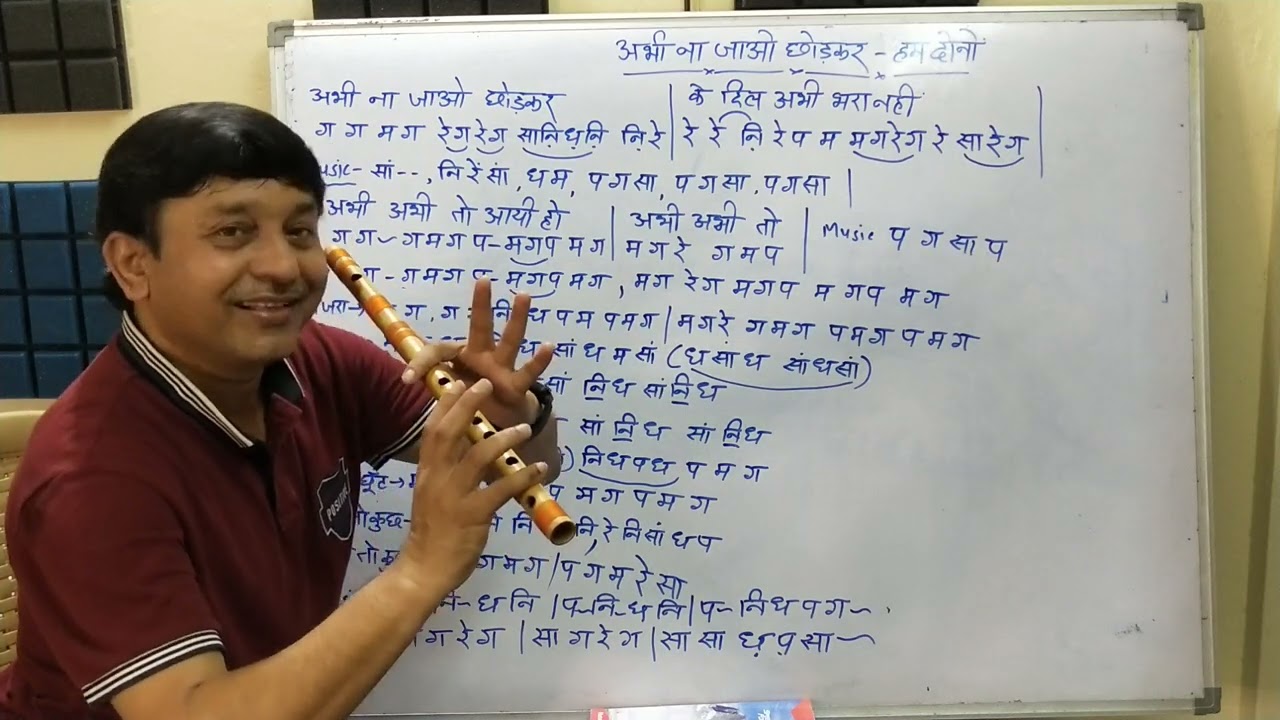 अभी ना जाओ छोड़कर - हम दोनों
अभी ना जाओ छोड़कर | के दिल अभी भरा नहीं |
ग ग म ग रेगरेग सानि़ध़नि़ नि़ रे | रे रे नि़ रे प म मगरेग रे सारेग |
सां--, नि रें सां, ध म, प ग सा, प ग सा, प ग सा |
अभी अभी तो आयी हो | अभी अभी तो |
ग ग~ ग म ग प-मगप म ग | म ग रे ग म प | Music प ग सा प
ग - ग म ग प - मगप म ग, म ग रे ग म ग प म ग प म ग
ग, ग नि ध प म प म ग | म ग रे ग म ग प म ग प म ग
ध सां ध म सां (ध सां ध सां ध सां)
सां नि॒ ध सां नि॒ ध
सां नि॒ ध सां नि॒ ध
) नि ध प ध प म ग
प म ग प म ग
कुछ- नि नि, रे नि सां ध प
तो ग म ग | प ग म रे सा
नि- ध नि | प-नि-ध नि | प- नि ध प ग ~
ग रे ग | सा ग रे ग | सा सा ध़ प़ सा ~
POSITIVE